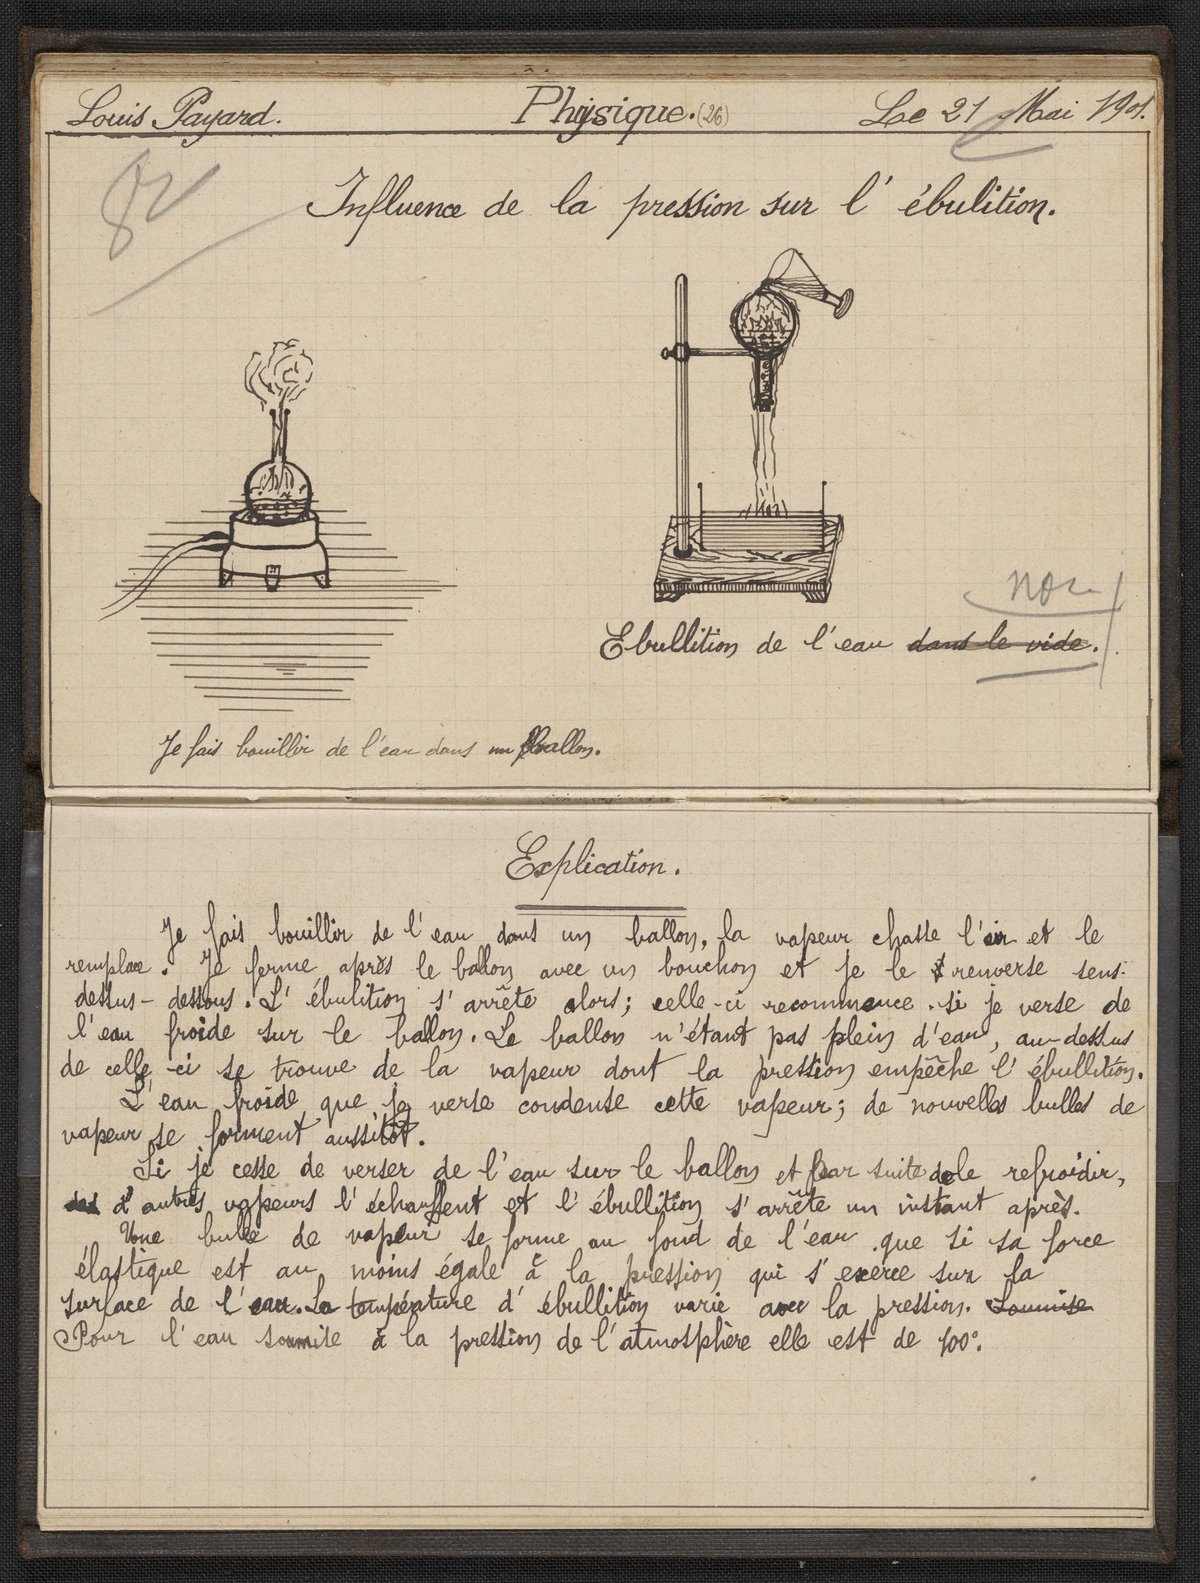 Louis Payard.
Physique. (26)
Le 21 Mai 1901.
Influence de la pression sur l'ébulition.
non
Ebullition de l'eau dans le vide.
Je fais bouillir de l'eau dans un ballon.
Explication.
Je fais bouillir de l'eau dans un ballon, la vapeur chasse l'air et le
remplace. Je ferme après le ballon avec un bouchon et je le renverse sens-
dessus-dessous. L'ébulition s'arrête alors; celle-ci recommence si je verse de
l'eau froide sur le ballon. Le ballon n'étant pas plein d'eau, au-dessus
de celle-ci se trouve de la vapeur dont la pression empêche l'ébullition.
L'eau froide que je verse condense cette vapeur; de nouvelles bulles de
vapeur se forment aussitôt.
Si je cesse de verser de l'eau sur le ballon et par suite de le refroidir,
des d'autres vapeurs l'échauffent et l'ébullition s'arrête un instant après.
Une bulle de vapeur se forme au fond de l'eau que si sa force
élastique est au moins égale à la pression qui s'exerce sur la
surface de l'eau. La température d'ébullition varie avec la pression. Soumise
Pour l'eau soumise à la pression de l'atmosphère elle est de 100°.